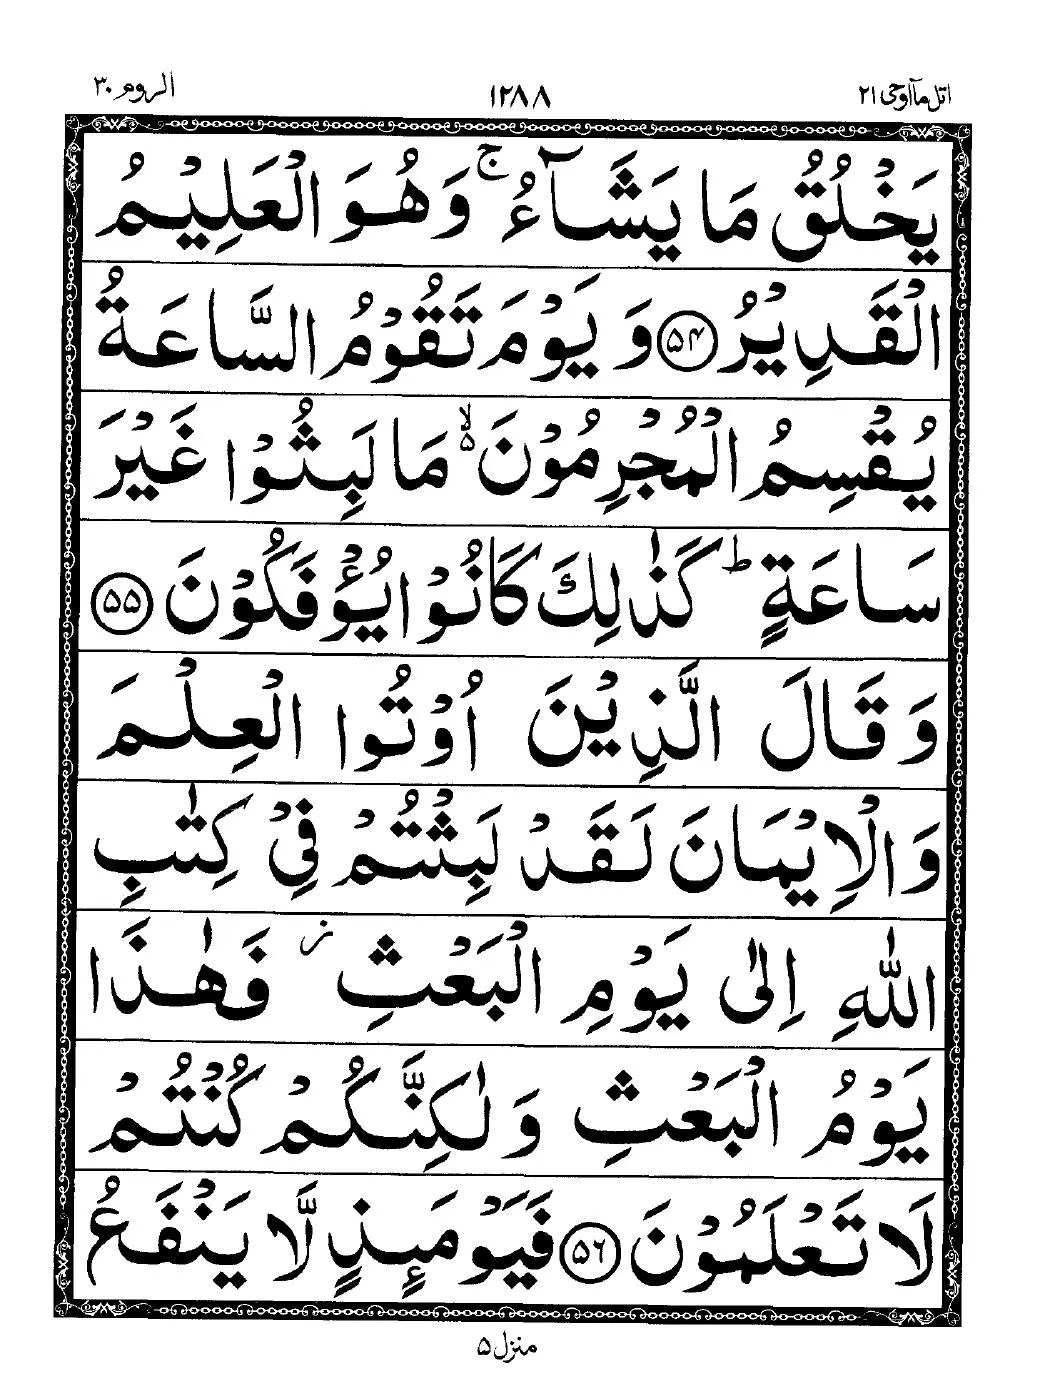 الروم ٣٠ ١٢٨٨ اتل مآاوحی ٢١
يَخْلُقُ مَا يَشَآءُ ۚ وَهُوَ الْعَلِيْمُ
الْقَدِيْرُ ۝۵۴ وَ يَوْمَ تَقُوْمُ السَّاعَةُ
يُقْسِمُ الْمُجْرِمُوْنَ ۙ۵ مَا لَبِثُوْا غَيْرَ
سَاعَةٍ ؕ كَذٰلِكَ كَانُوْا يُؤْفَكُوْنَ ۝۵۵
وَقَالَ الَّذِيْنَ اُوْتُوا الْعِلْمَ
وَالْاِيْمَانَ لَقَدْ لَبِثْتُمْ فِيْ كِتٰبِ
اللّٰهِ اِلٰى يَوْمِ الْبَعْثِ ز فَهٰذَا
يَوْمُ الْبَعْثِ وَلٰكِنَّكُمْ كُنْتُمْ
لَا تَعْلَمُوْنَ ۝۵۶ فَيَوْمَئِذٍ لَّا يَنْفَعُ
منزل ۵